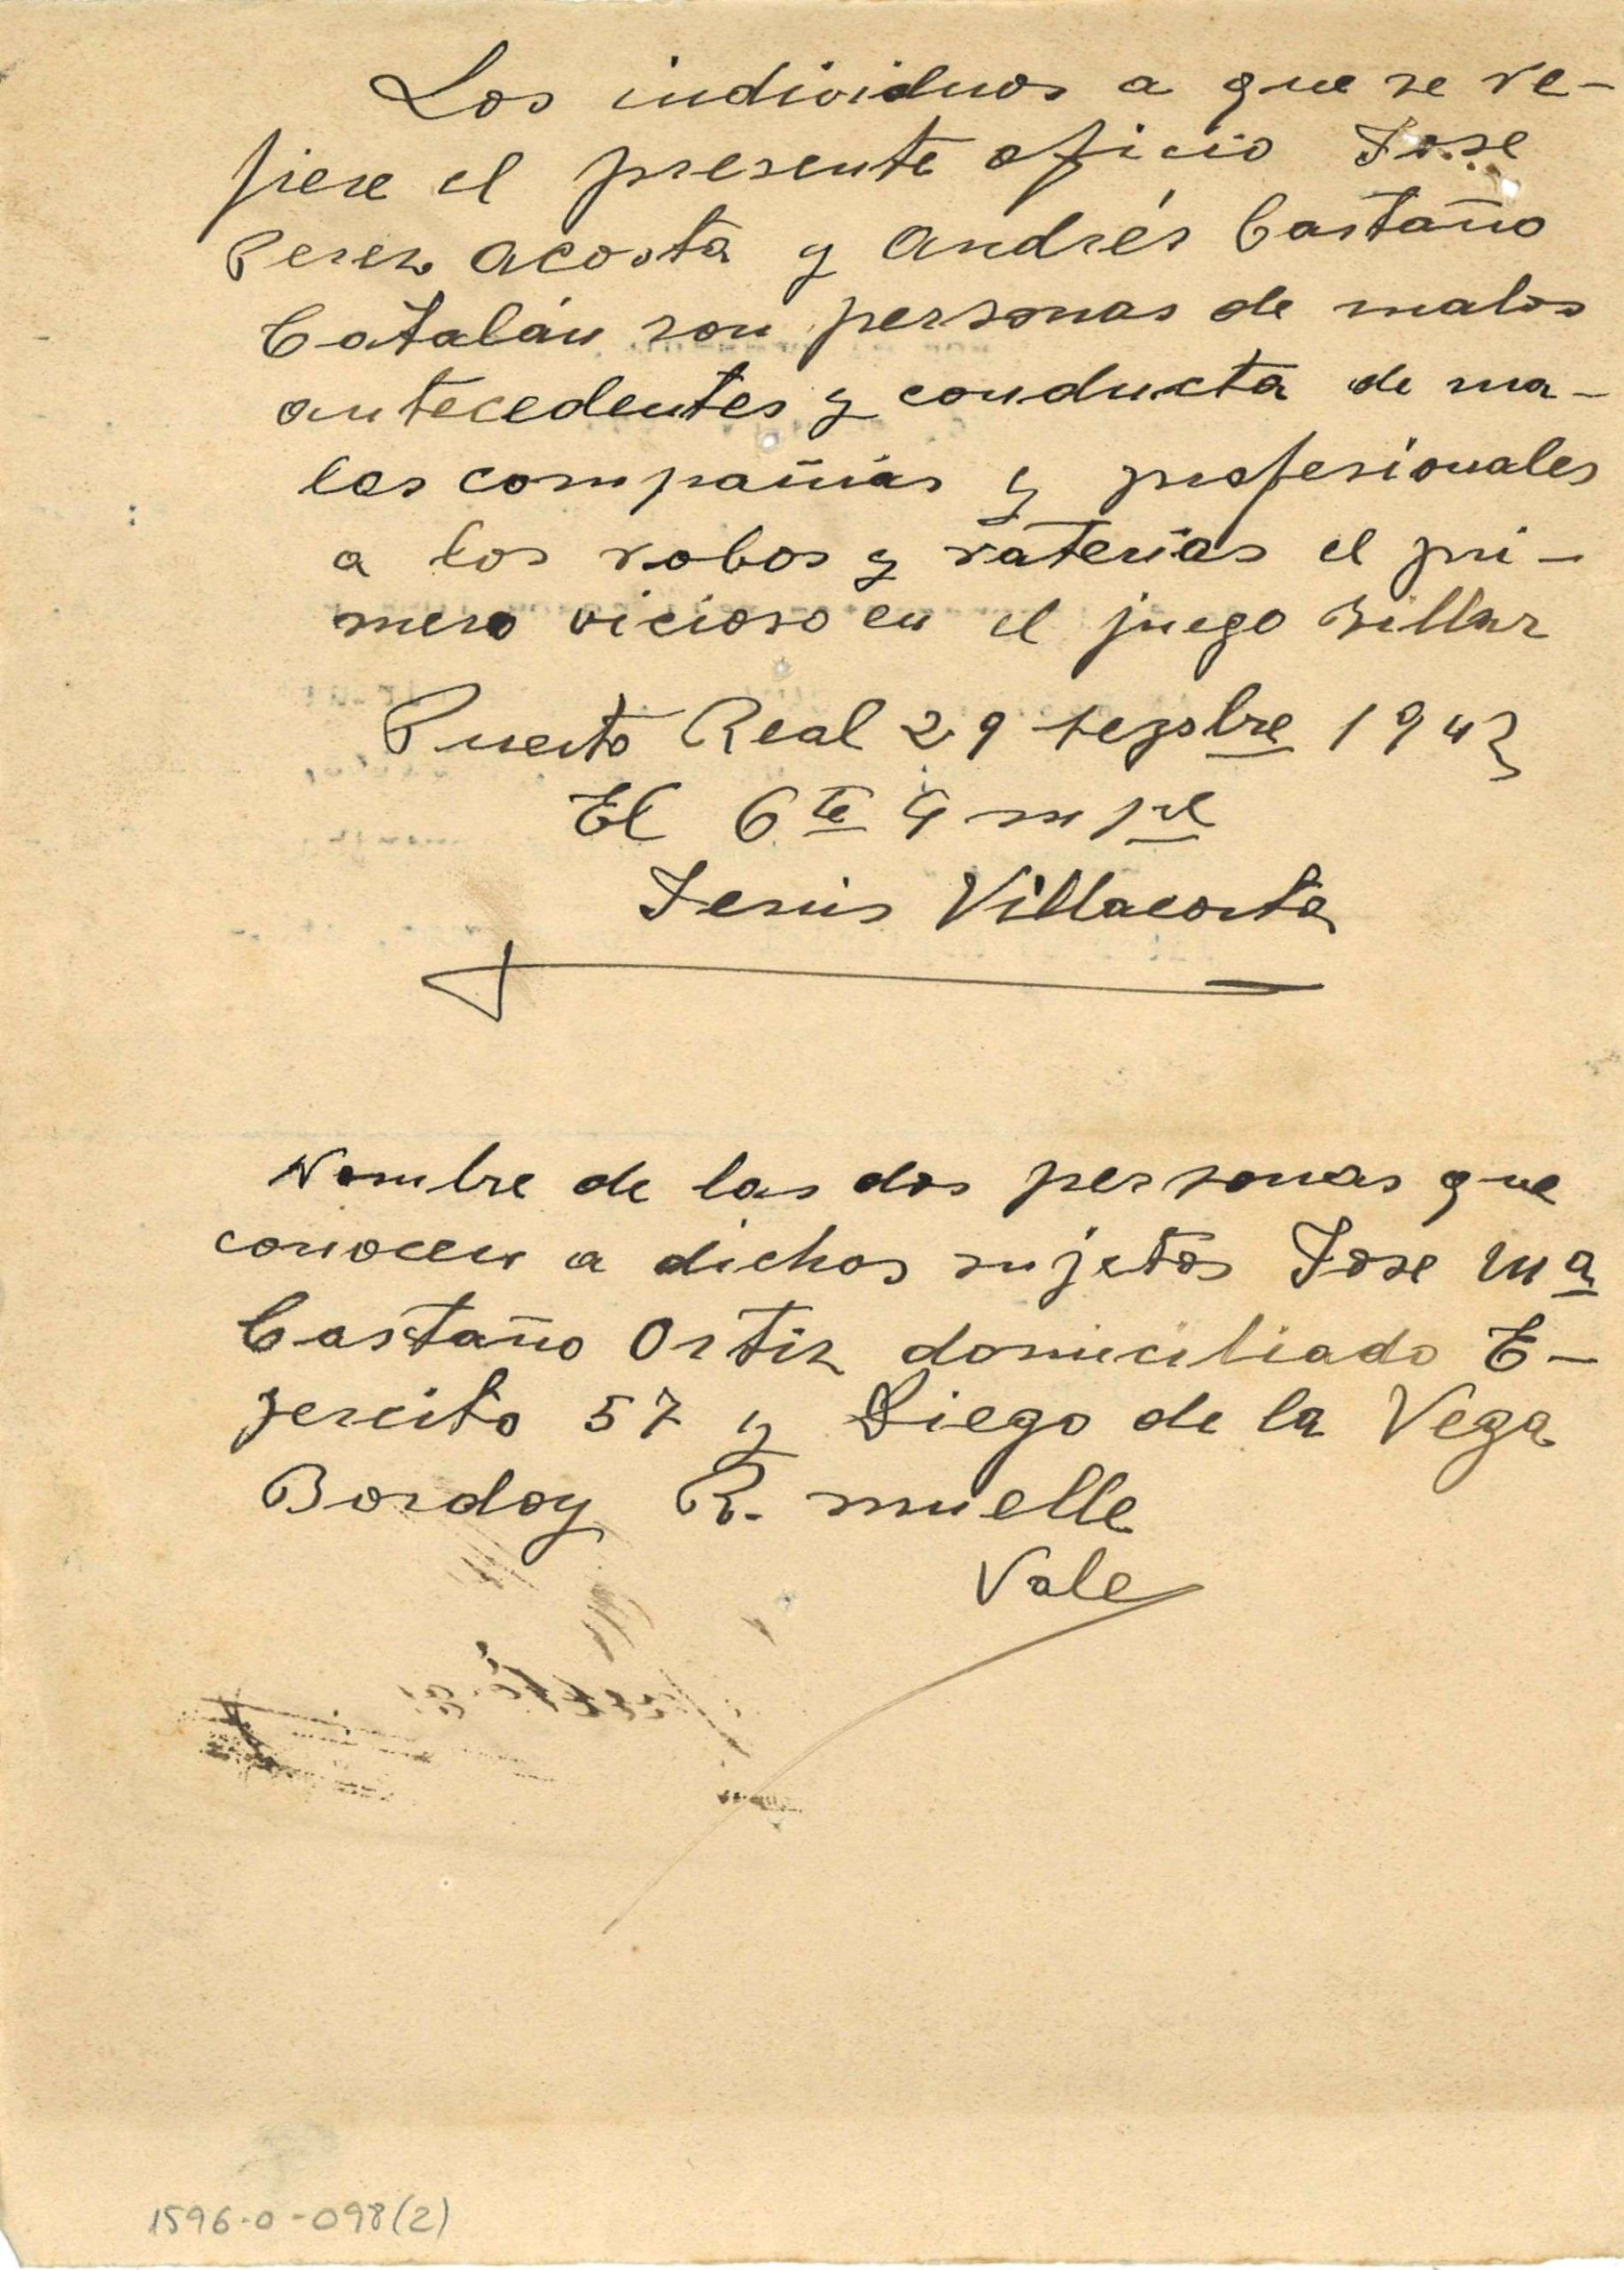 Los individuos a que se re-
fiere el presente oficio Jose
Perez Acosta y Andrés Castaño
Catalán son personas de malos
antecedentes y conducta de ma-
las compañias y profesionales
a los robos y raterias el pri-
mero vicioso en el juego Billar
Puerto Real 29 sepbre 1943
El Cte G mpal
Jesus Villacorta
Nombre de las dos personas que
conocen a dichos sujetos Jose Mª
Castaño Ortiz domiciliado E-
jercito 57 y Diego de la Vega
Bordoy R. muelle
Vale
1596-0-098(2)